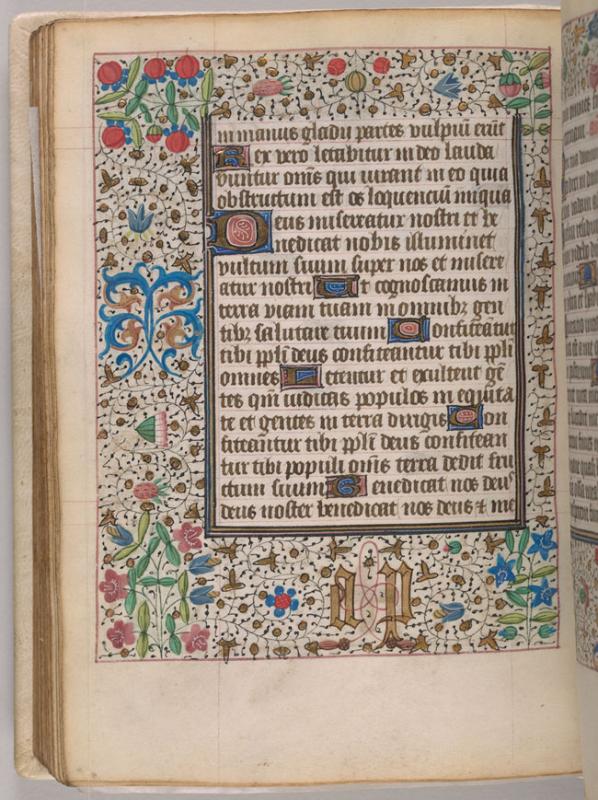 in manus gladii partes vulpiū erūt
Rex vero letabitur in deo lauda
buntur om̄s qui iurant in eo quia
obstructum est os loquenciū iniqua
Deus misereatur nostri et be
nedicat nobis illuminet
vultum suum super nos et misere
atur nostri Et cognoscamus in
terra viam tuam in omnibꝫ gen
tibꝫ salutare tuum Confiteātur
tibi pp̄li deus confiteantur tibi pp̄li
omnes Letentur et exultent gē
tes qm̄ iudicas populos in equita
te et gentes in terra dirigis Con
fiteantur tibi pp̄li deus confitean
tur tibi populi om̄s terra dedit fru
ctum suum Benedicat nos deus
deus noster benedicat nos deus ⁊ me
a P